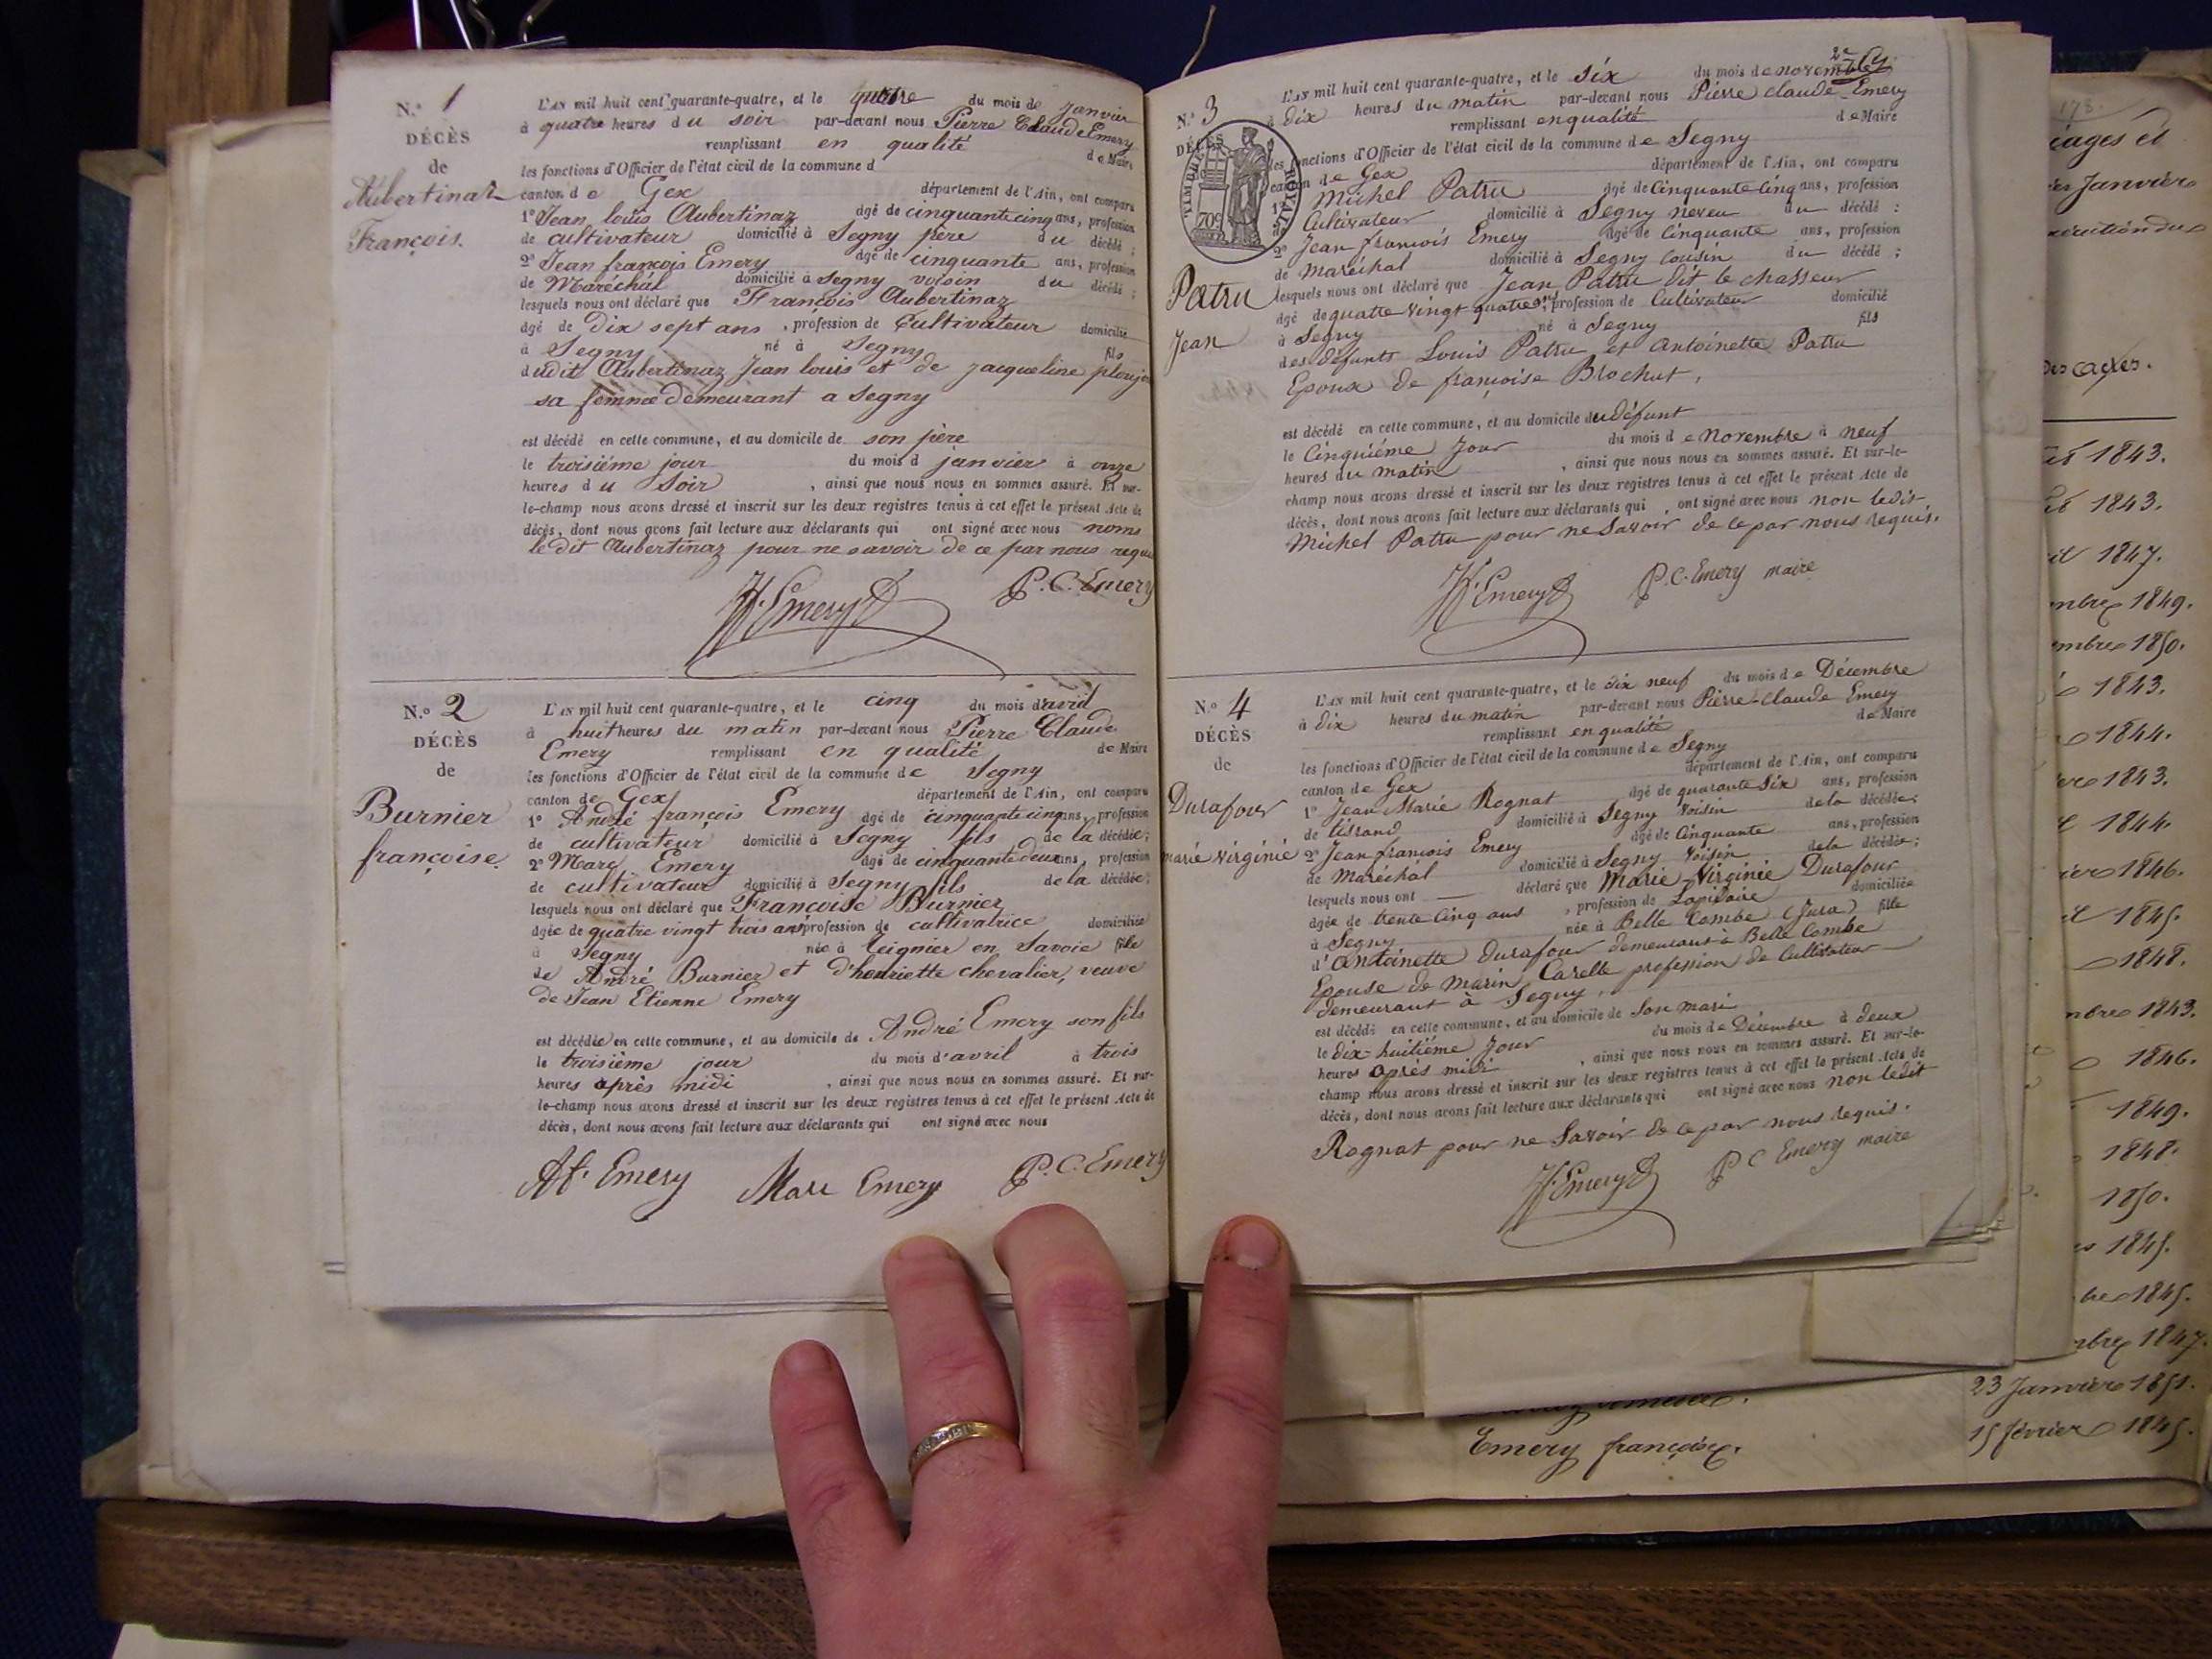 N.o 1
DÉCÈS
de
Aubertinaz
François.
L'AN mil huit cent quarante-quatre, et le quatre du mois de Janvier
à quatre heures du soir par-devant nous Pierre Claude Emery
remplissant en qualité de Maire
les fonctions d'Officier de l'état civil de la commune d
canton de Gex département de l'Ain, ont comparu
1o Jean louis Aubertinaz âgé de cinquante cinq ans, profession
de cultivateur domicilié à Segny père du décédé ;
2o Jean françois Emery âgé de cinquante ans, profession
de Maréchal domicilié à Segny voisin du décédé ;
lesquels nous ont déclaré que François Aubertinaz
âgé de dix sept ans , profession de Cultivateur domicilié
à Segny né à Segny fils
dudit Aubertinaz Jean louis et de Jacqueline
sa femme demeurant a Segny
est décédé en cette commune, et au domicile de son père
le troisiéme jour du mois d janvier à onze
heures du Soir , ainsi que nous nous en sommes assuré. Et sur-
le-champ nous avons dressé et inscrit sur les deux registres tenus à cet effet le présent Acte de
décès, dont nous avons fait lecture aux déclarants qui ont signé avec nous noms
ledit Aubertinaz pour ne savoir de ce par nous requis
Jf. Emery P. C. Emery
N.o 2
DÉCÈS
de
Burnier
françoise.
L'AN mil huit cent quarante-quatre, et le cinq du mois d'avril
à huit heures du matin par-devant nous Pierre Claude
Emery remplissant en qualité de Maire
les fonctions d'Officier de l'état civil de la commune de Segny
canton de Gex département de l'Ain, ont comparu
1o André françois Emery âgé de cinquante cinq ans, profession
de cultivateur domicilié à Segny fils de la décédée;
2o Marc Emery âgé de cinquante deux ans, profession
de cultivateur domicilié à Segny fils de la décédée;
lesquels nous ont déclaré que Françoise Burnier
âgée de quatre vingt trois ans profession de cultivatrice domiciliée
à Segny née à Reignier en Savoie fille
de André Burnier et d'henriette chevalier, veuve
de Jean Etienne Emery
est décédée en cette commune, et au domicile de André Emery son fils
le troisième jour du mois d'avril à trois
heures après midi , ainsi que nous nous en sommes assuré. Et sur-
le-champ nous avons dressé et inscrit sur les deux registres tenus à cet effet le présent Acte de
décès, dont nous avons fait lecture aux déclarants qui ont signé avec nous
Af. Emery Marc Emery P. C. Emery
N.o 3
DÉCÈS
TIMBRE ROYAL
70c
Patru
Jean
L'AN mil huit cent quarante-quatre, et le six du mois de novembre
à dix heures du matin par-devant nous Pierre claude Emery
remplissant en qualité de Maire
les fonctions d'Officier de l'état civil de la commune de Segny
canton de Gex département de l'Ain, ont comparu
1o Michel Patru âgé de Cinquante Cinq ans, profession
Cultivateur domicilié à Segny neveu du décédé ;
2o Jean françois Emery âgé de Cinquante ans, profession
de Maréchal domicilié à Segny Cousin du décédé ;
lesquels nous ont déclaré que Jean Patru dit le chasseur
âgé de quatre vingt quatre ans, profession de Cultivateur domicilié
à Segny né à Segny fils
des défunts Louis Patru et Antoinette Patru
Epoux de françoise Brochut,
est décédé en cette commune, et au domicile du défunt
le Cinquiéme Jour du mois de Novembre à neuf
heures du matin , ainsi que nous nous en sommes assuré. Et sur-le-
champ nous avons dressé et inscrit sur les deux registres tenus à cet effet le présent Acte de
décès, dont nous avons fait lecture aux déclarants qui , ont signé avec nous non ledit
Michel Patru pour ne Savoir de ce par nous requis.
Jf. Emery P. C. Emery maire
N.o 4
DÉCÈS
de
Durafour
marie Virginie
L'AN mil huit cent quarante-quatre, et le dix neuf du mois de Décembre
à dix heures du matin par-devant nous Pierre-Claude Emery
remplissant en qualité de Maire
les fonctions d'Officier de l'état civil de la commune de Segny
canton de Gex département de l'Ain, ont comparu
1o Jean Marie Rognat âgé de quarante Six ans, profession
de tissrand domicilié à Segny Voisin de la décédée;
2o Jean françois Emery âgé de Cinquante ans, profession
de Maréchal domicilié à Segny Voisin de la décédée;
lesquels nous ont déclaré que Marie-Virginie Durafour
âgée de trente Cinq ans , profession de Lapidaire domiciliée
à Segny née à Belle Combe (Jura) fille
d'Antoinette Durafour demeurant à Belle Combe
Epouse de Marin Carelle profession de Cultivateur
demeurant à Segny,
est décédé en cette commune, et au domicile de Son mari
le dix-huitiéme Jour du mois de Décembre à deux
heures après midi , ainsi que nous nous en sommes assuré. Et sur-le-
champ nous avons dressé et inscrit sur les deux registres tenus à cet effet le présent Acte de
décès, dont nous avons fait lecture aux déclarants qui ont signé avec nous non ledit
Rognat pour ne Savoir de ce par nous requis.
Jf. Emery P C Emery maire
178.
Janvier
1843.
1843.
1847.
1849.
1850.
1843.
1844.
1843.
1844.
1846.
1845.
1848.
1843.
1846.
1849.
1848.
1850.
1845.
1845.
1847.
23 Janvier 1851.
Emery françoise. 15 février 1845.